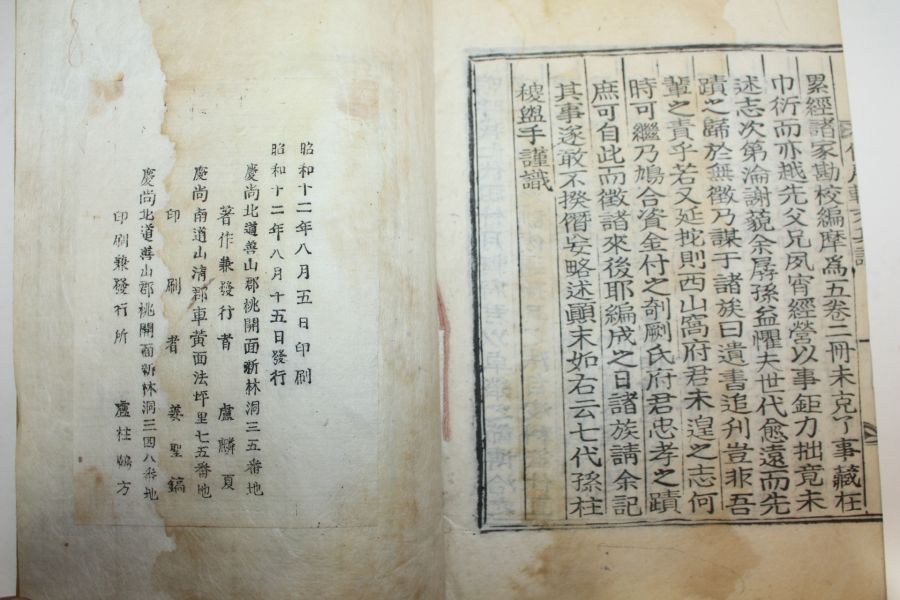 累經諸家勘校編摩爲五卷二冊未克了事藏在
巾衍而亦越先父兄夙宵經營以事鉅力拙竟未
述志次第淪謝藐余孱孫益懼夫世代愈遠而先
蹟之歸於無徵乃謀于諸族曰遺書追刋豈非吾
輩之責乎若又延拕則西山窩府君未遑之志何
時可繼乃鳩合資金付之剞劂氏府君忠孝之蹟
庶可自此而徵諸來後耶編成之日諸族請余記
其事遂敢不揆僭妄略述顚末如右云七代孫柱
稷盥手謹識
昭和十二年八月五日印刷
昭和十二年八月十五日發行
慶尚北道善山郡桃開面新林洞三五番地
著作兼發行者 盧麟夏
慶尚南道山清郡車黃面法坪里七五番地
印刷者 姜聖鎬
慶尚北道善山郡桃開面新林洞三四八番地
印刷兼發行所 盧柱 方